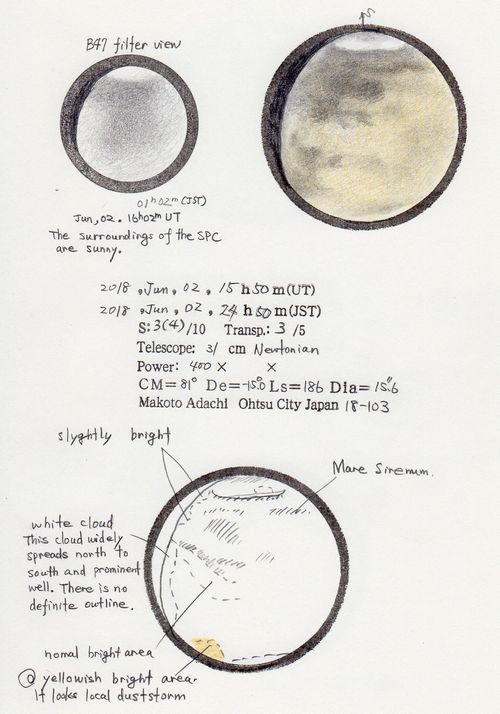 S
B47 filter view
01h02m(JST)
Jun, 02. 16h02m UT
The surroundings of the SPC
are sunny.
2018 , Jun , 02 , 15 h 50 m(UT)
2018 , Jun , 02 , 24 h 50 m(JST)
S: 3(4)/10 Transp.: 3 /5
Telescope: 31 cm Newtonian
Power: 400 × ×
CM= 81° De=-15.0° Ls= 186 Dia= 15.6"
Makoto Adachi Ohtsu City Japan 18-103
slyghtly bright
Mare Sirenum.
white cloud
This cloud widely
spreads north to
south and prominent
well. There is no
definite outline.
nomal bright area
@ yellowish bright area.
It looks local duststorm